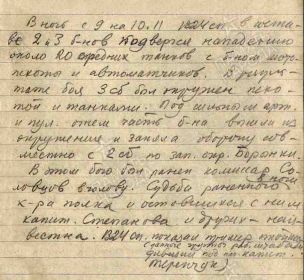 В ночь с 9 на 10.11 1824 сп в составе
2 и 3 б-нов подвергся нападению
около 20 средних танков с б-ном мото-
пехоты и автоматчиков. В резуль-
тате боя 3 сб был окружен пехо-
той и танками. Под сильным арт.
и пул. огнем часть б-на вышла из
окружения и заняла оборону сов-
местно с 2 сб по зап. окр. Боронки.
В этом бою был ранен комиссар Со-
ловцов в голову. Судьба раненного
к-ра полка и оставшихся с ним
капит. Степанова и других - неиз-
вестна. 1324 сп. показал пример
капит.
Теренчук)